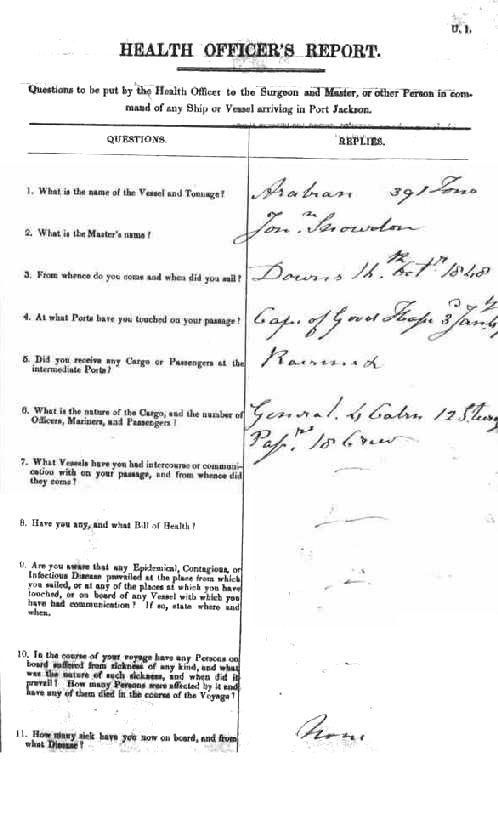 U. 1.
HEALTH OFFICER'S REPORT.
Questions to be put by the Health Officer to the Surgeon and Master, or other Person in com-
mand of any Ship or Vessel arriving in Port Jackson.
QUESTIONS. REPLIES.
1. What is the name of the Vessel and Tonnage? Arabian 391 Tons
2. What is the Master's name? Jonn Snowdon
3. From whence do you come and when did you sail? Downs 14th Octr 1848
4. At what Ports have you touched on your passage? Cape of Good Hope 3 Jany
5. Did you receive any Cargo or Passengers at the
intermediate Ports? Received
6. What is the nature of the Cargo, and the number of
Officers, Mariners, and Passengers? General. 4 Cabin 12
Pasrs 18 Crew
7. What Vessels have you had intercourse or communi-
cation with on your passage, and from whence did
they come? —
8. Have you any, and what Bill of Health? —
9. Are you aware that any Epidemical, Contagious, or
Infectious Disease prevailed at the place from which
you sailed, or at any of the places at which you have
touched, or on board of any Vessel with which you
have had communication? If so, state where and
when.
10. In the course of your voyage have any Persons on
board suffered from sickness of any kind, and what
was the nature of such sickness, and when did it
prevail? How many Persons were affected by it and
have any of them died in the course of the Voyage?
11. How many sick have you now on board, and from
what Disease? None